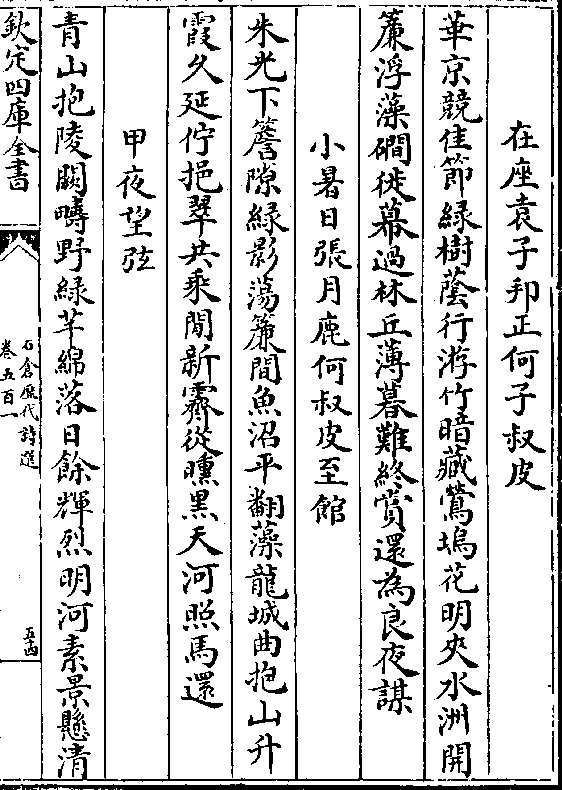 在座袁子邦正何子叔皮
華京競佳節緑樹蔭行游竹暗藏鶯塢花明夾水洲開
簾浮藻礀徙幕過林丘薄暮難終賞還為良夜謀
小暑日張月鹿何叔皮至館
朱光下簷隙緑影蕩簾間魚沼平翻藻龍城曲抱山升
霞久延佇挹翠共乘閒新霽從曛黑天河照馬還
甲夜望弦
青山抱陵闕疇野緑芊綿落日餘輝烈明河素景懸清
欽定四庫全書
石倉歴代詩選
卷五百一
五十四